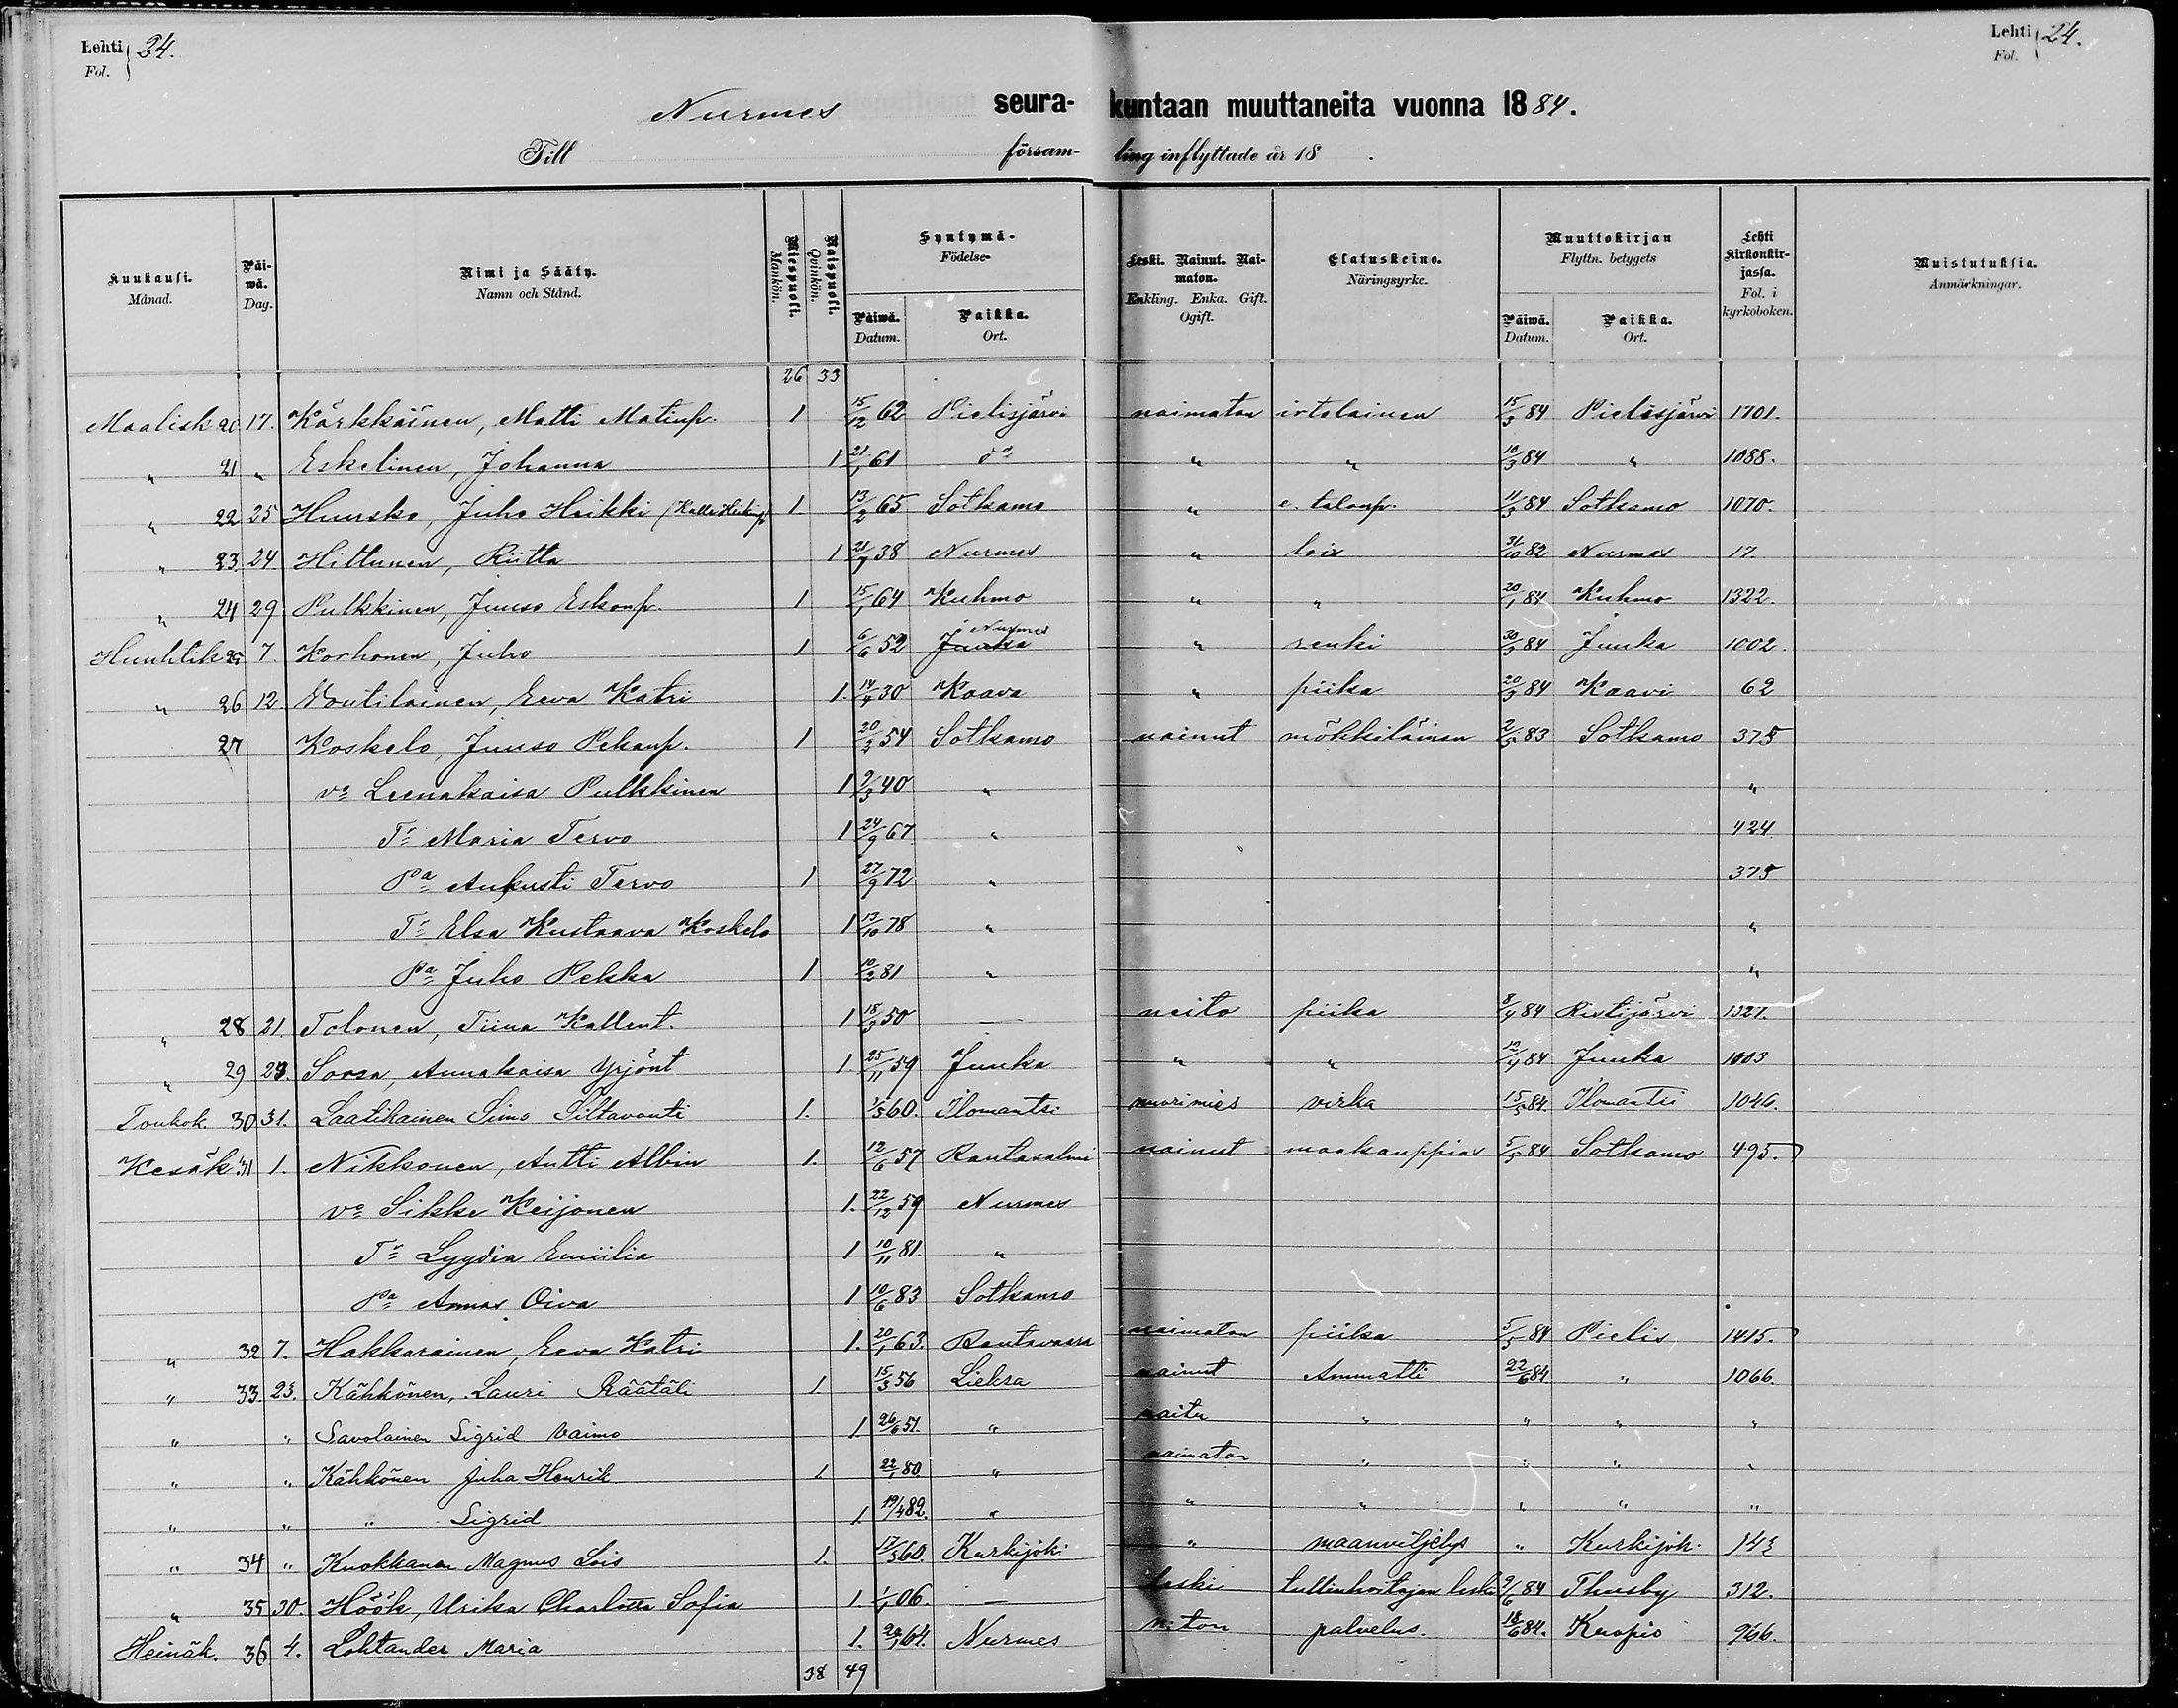 Lehti 24.
Fol.
Lehti 24.
Fol.
Nurmes seura- kuntaan muuttaneita vuonna 1884.
Till församling inflyttade år 18 .
Kuukausi. Månad. Päiwä. Dag. Nimi ja Sääty. Namn och Stånd. Miespuoli. Mankön. Naispuoli. Qvinkön. Syntymä- Födelse- Päiwä. Datum. Paikka. Ort. Leski. Nainut. Naimaton. Enkling. Enka. Gift. Ogift. Elatuskeino. Näringsyrke. Muuttokirjan Flyttn. betygets Päiwä. Datum. Paikka. Ort. Lehti Kirkonkirjassa. Fol. i kyrkoboken. Muistutuksia. Anmärkningar.
26 33
Maalisk 20 17. Kärkkäinen, Matti Matinp. 1 15/12 62 Pielisjärvi naimaton irtolainen 15/3 84 Pielisjärvi 1701.
" 21 " Eskelinen, Johanna 1 21/1 61 do " " 10/3 84 " 1088.
" 22 25 Huusko, Juho Heikki (Kalle Heikinp) 1. 13/2 65 Sotkamo " e. talonp. 11/3 84 Sotkamo 1070.
" 23 24 Hiltunen, Riitta 1 21/7 38 Nurmes " lois 31/10 82 Nurmes 17.
" 24 29 Pulkkinen, Juuso Eskonp. 1 15/1 64 Kuhmo " " 20/1 84 Kuhmo 1322.
Huuhtik 25 7. Korhonen, Juho 1 6/6 52 Juuka Nurmes " renki 30/3 84 Juuka 1002.
" 26 12 Voutilainen, Eeva Katri 1. 14/4 30 Kaava " piika 20/3 84 Kaavi 62
27 Koskelo, Juuso Pekanp. 1 20/3 54 Sotkamo nainut mökkiläinen 2/5 83 Sotkamo 375
vo Leenakaisa Pulkkinen 1 9/3 40 " "
Tr Maria Tervo 1 24/9 67 " 424.
Pa Aukusti Tervo 1 27/9 72 " 375
Tr Elsa Kustaava Koskelo 1 13/10 78 " "
Pa Juho Pekka 1 10/2 81 " "
" 28 21. Tolonen, Tiina Kallent. 1 18/3 50 — neito piika 8/4 84 Ristijärvi 1327.
" 29 23. Sorsa, Annakaisa Yrjönt 1. 25/11 59 Juuka " " 12/4 84 Juuka 1003
Toukok. 30 31. Laatikainen Simo Siltavouti 1. 1/5 60. Ilomantsi nuorimies virka 15/5 84. Ilomantsi 1046.
Kesäk. 31 1. Nikkonen, Antti Albin 1. 12/6 57 Rantasalmi nainut maakauppias 5/5 84 Sotkamo 495.
vo Sikke Keijonen 1. 22/12 59 Nurmes
Tr Lyydia Emiilia 1 10/11 81. "
Pa Armas Oiva 1 10/6 83 Sotkamo
" 32 7. Hakkarainen, Eeva Katri 1. 20/1 63. Rautavaara naimaton piika 5/5 84 Pielis 1415.
" 33. 23. Kähkönen, Lauri Räätäli 1 15/3 56 Lieksa nainut Ammatti 22/6 84 " 1066.
" " Savolainen Sigrid vaimo 1 26/6 51. " naitu " " " "
" " Kähkönen Juha Henrik 1 22/1 80 " naimaton " " " "
" " " Sigrid 1. 19/4 82. " " " " " "
" 34 " Kuokkanen Magnus Lois 1. 17/3 60. Kurkijoki " maanviljelys " Kurkijok.
" 35 30. Höök, Ulrika Charlotta Sofia 1. 1/1 06. — leski tullinhoitajan leski 9/6 84 Thusby 312.
Heinäk. 36 4. Lohtander Maria 1. 64. Nurmes n:ton palvelus. 18/6 84. Kuopio 966.
38 49